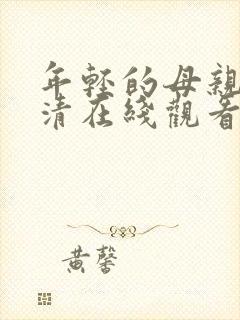 年轻的母親
清在线觀看
黄馨